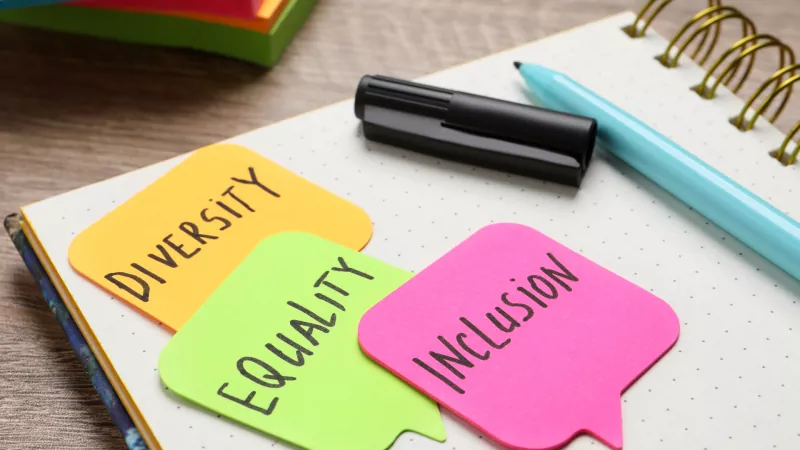 DIVERSITY
EQUALITY
INCLUSION